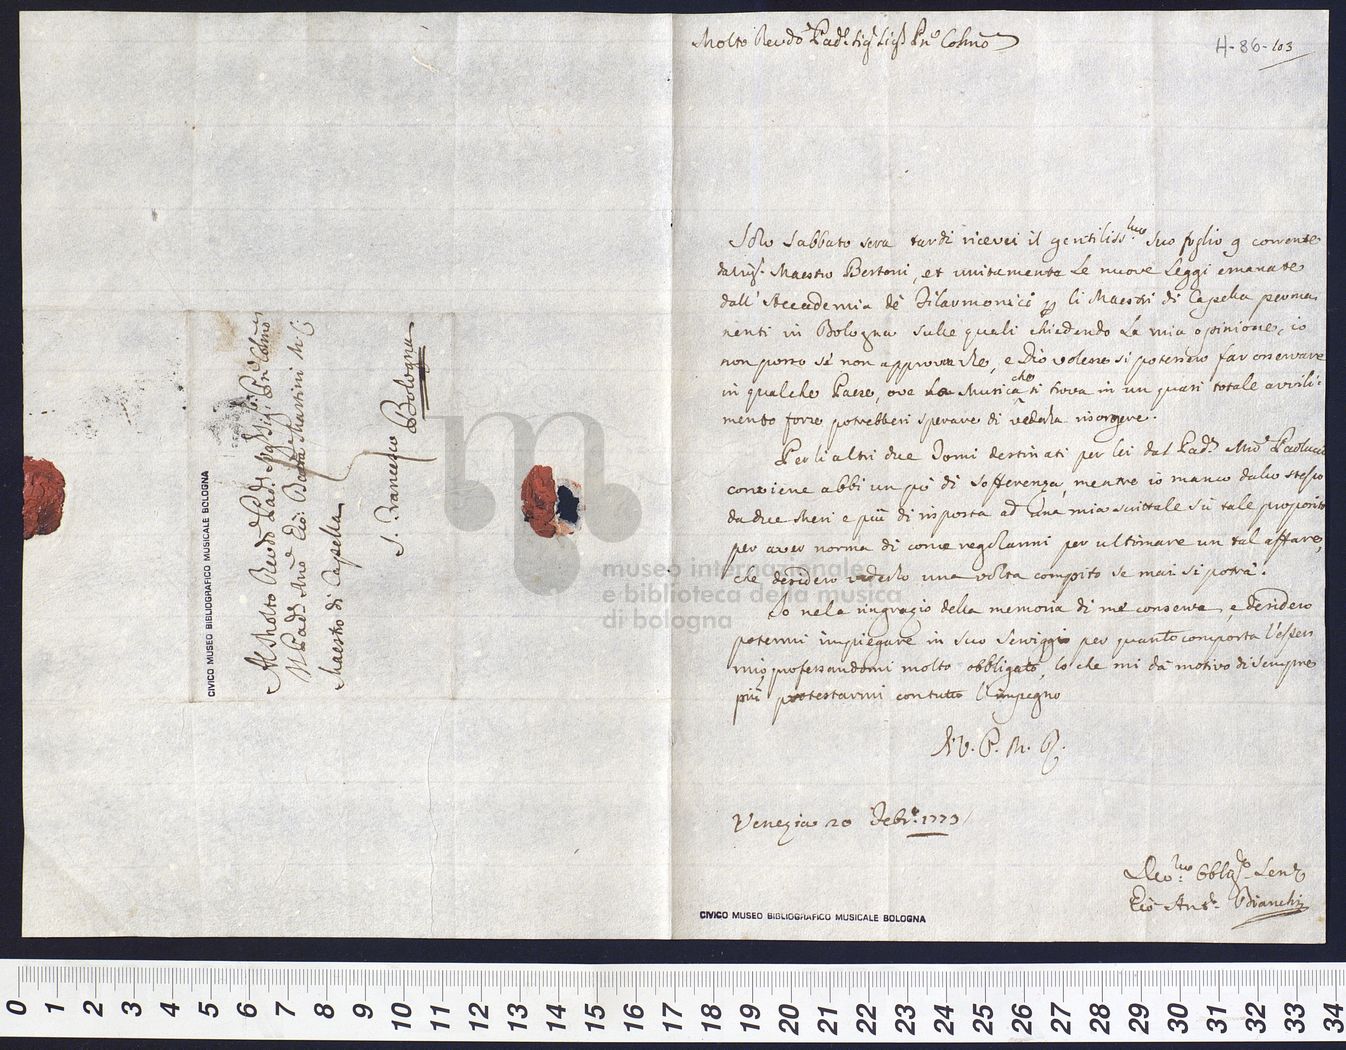 Molto Revdo Pade Sigr Sigr Pne Colmo
H-86-103
Solo Sabbato sera tardi ricevei il gentilissmo suo foglio 9 corrente
dal Sigr Maestro Bertoni, et unitamente le nuove Leggi emanate
dall'Accademia de Filarmonici per li Maestri di Capella perma
nenti in Bologna sulle quali chiedendo la mia opinione, io
non posso se non approvarle, e Dio volesse si potessero far osservare
in qualche Paese, ove la Musica che si trova in un quasi totale avvili:
mento forse potrebbesi sperare di vederla risorgere.
Per li altri due Tomi destinati per lei dal Pade Mro Paolucci
conviene abbi un po di sofferenza, mentre io manco dallo stesso
da due Mesi e più di risposta ad una mia scrittale sù tale proposito
per aver norma di come regolarmi per ultimare un tal affare,
che desidero vederlo una volta compito se mai si potrà.
Io nela ringrazio della memoria di me conserva, e desidero
potermi impiegare in suo Serviggio per quanto comporta l'esser
mio, professandomi molto obbligato, lo che mi dà motivo di sempre
più protestarmi con tutto l'impegno
Di V. P. M. R.
Venezia 20 Febr: 1773
Devmo: Obblgo Serve
Gio Antо: Bianchi
CIVICO MUSEO BIBLIOGRAFICO MUSICALE BOLOGNA
Al Molto Revdo Pade Sigr Sigr Pne Colmo
Il Pade Mro Gio: Batta Martini M:
Maestro di Capella
S. Francesco
Bologna
CIVICO MUSEO BIBLIOGRAFICO MUSICALE BOLOGNA
museo internazionale
e biblioteca della musica
di bologna
0 1 2 3 4 5 6 7 8 9 10 11 12 13 14 15 16 17 18 19 20 21 22 23 24 25 26 27 28 29 30 31 32 33 34